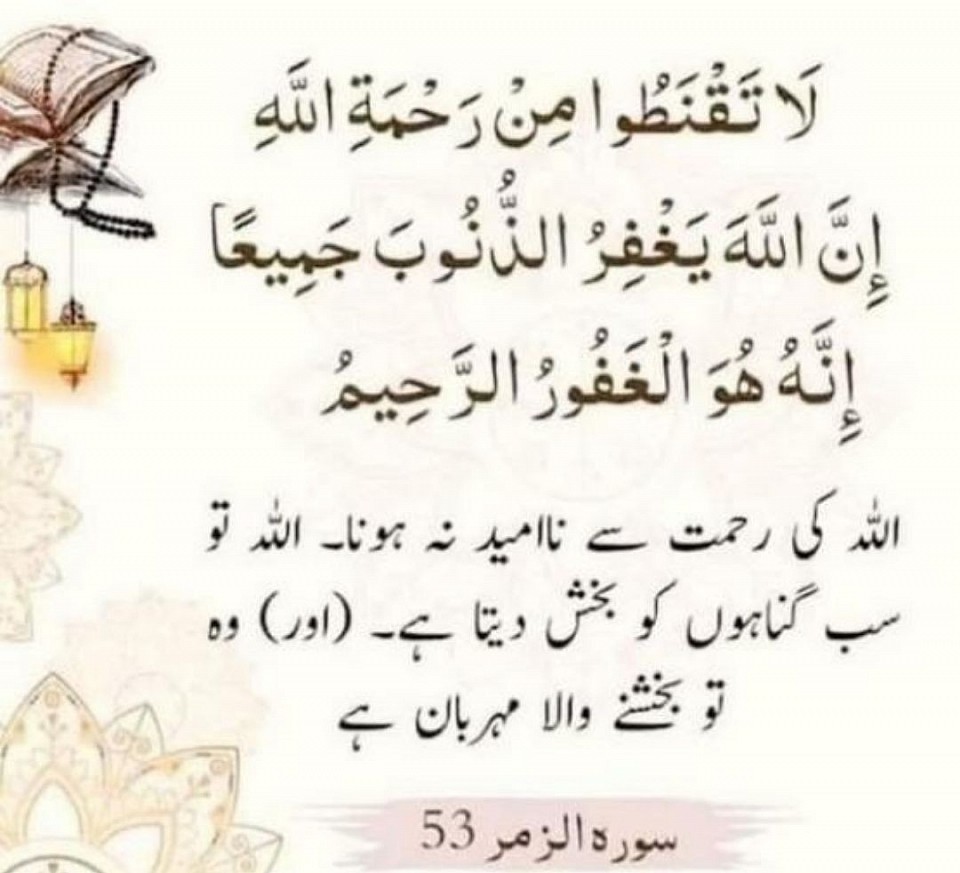 لَا تَقْنَطُوا مِنْ رَحْمَةِ اللَّهِ
إِنَّ اللَّهَ يَغْفِرُ الذُّنُوبَ جَمِيعًا
إِنَّهُ هُوَ الْغَفُورُ الرَّحِيمُ
اللہ کی رحمت سے ناامید نہ ہونا۔ اللہ تو
سب گناہوں کو بخش دیتا ہے۔ (اور) وہ
تو بخشنے والا مہربان ہے
سورہ الزمر 53